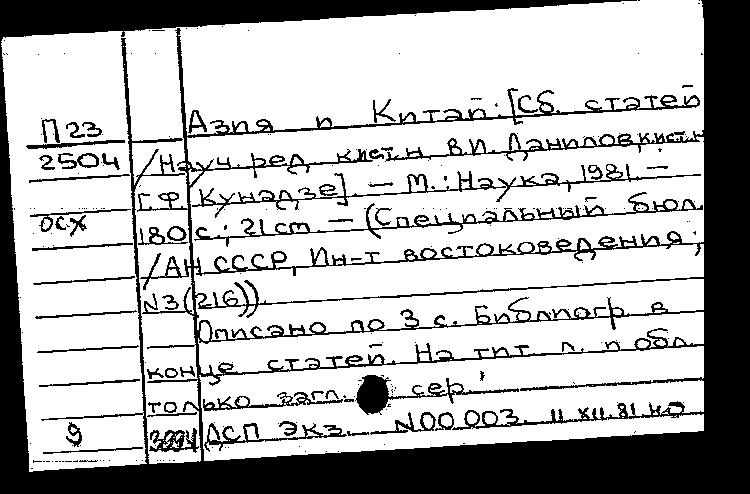 П23 Азия и Китай: [Сб. статей
2504 /Науч. ред. к.ист.н. В.И. Данилов, к.ист.н
Г.Ф. Кунадзе]. — М.: Наука, 1981. —
осх 180 с.; 21 cm. — (Специальный бюл.
/АН СССР, Ин-т востоковедения;
N3(216)).
Описано по 3 с. Библиогр. в
конце статей. На тит. л. и обл.
только загл. сер.
9 ДСП Экз. N00 003. 11 XII. 81